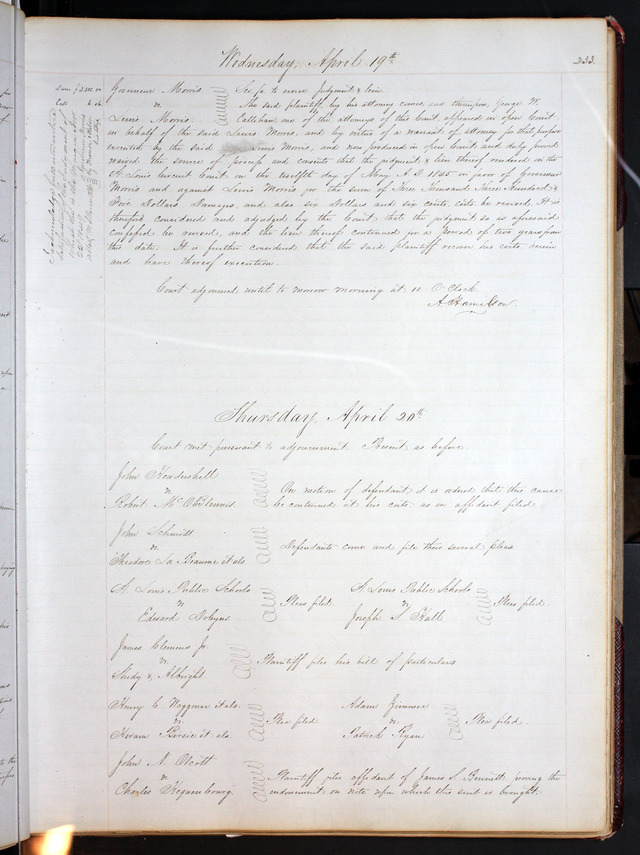 Wednesday, April 19th
233.
Gouverneur Morris
vs
Lewis Morris.
Sci. fa. to revive judgment & lien
The said plaintiff by his attorney comes, and thereupon, George W.
Callihan one of the attorneys of this Court appeared in open Court
in behalf of the said Lewis Morris, and by virtue of a warrant of attorney for that purpose
executed by the said Lewis Morris, and now produced in open Court and duly proved
waived the service of process and consents that the judgment & lien thereof rendered in the
St. Louis Circuit Court on the twelfth day of May A.D. 1845 in favor of Gouverneur
Morris and against Lewis Morris for the sum of Three Thousand Three Hundred &
Five Dollars Damages, and also six Dollars and six cents, costs be revived. It is
therefore considered and adjudged by the Court, that the judgment so as aforesaid
confessed be revived, and the lien thereof continued for a period of two years from
this date. It is further considered that the said plaintiff recover his costs herein
and have thereof execution.
Court adjourned until to morrow morning at 10 O'Clock
A. Hamilton.
Thursday, April 20th
Court met pursuant to adjournment. Present as before.
John Hendershell
vs
Robert McOBlennis.
On motion of defendant, it is ordered that this cause
be continued at his costs as on affidavit filed
John Schmidt
vs
Theodore La Beaume et als
Defendants come and file their several pleas
St. Louis Public Schools
vs
Edward Dobyns
Pleas filed
St. Louis Public Schools
vs
Joseph S. Hall
Pleas filed.
James Clemens Jr.
vs.
Shidy & Albright
Plaintiff files his bill of particulars
Henry C. Waggoner et als.
vs.
Hiram Persie et als
Plea filed
Adam Zimmer
vs.
Patrick Ryan
Plea filed.
John N. Olcott
vs
Charles Kequenbourg.
Plaintiff files affidavit of James S. Bennett, proving the
endorsement on note upon which this suit is brought.